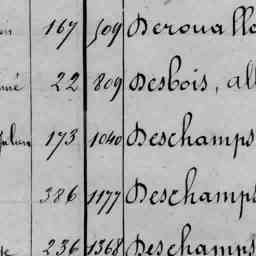 167 509 Derouall
22 809 Desbois, all
173 1040 Deschamps
386 1177 Deschamps
236 1368 Deschamps